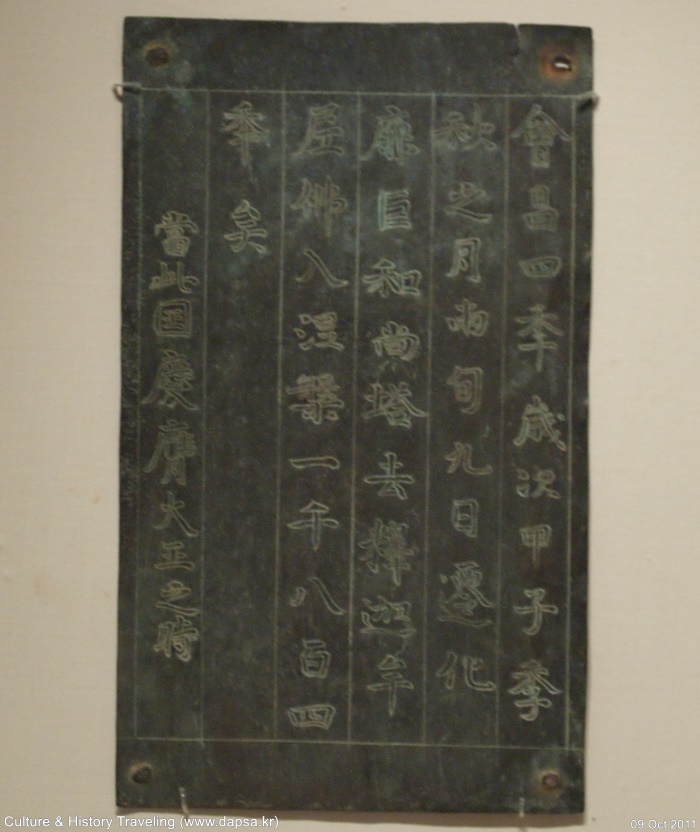 會昌四秊歲次甲子季
秋之月兩旬九日遷化
廉巨和尚塔去釋迦牟
尼佛入涅槃一千八百四
秊矣
當此国慶膺大王之時
Culture & History Traveling (www.dapsa.kr)
09 Oct 2011